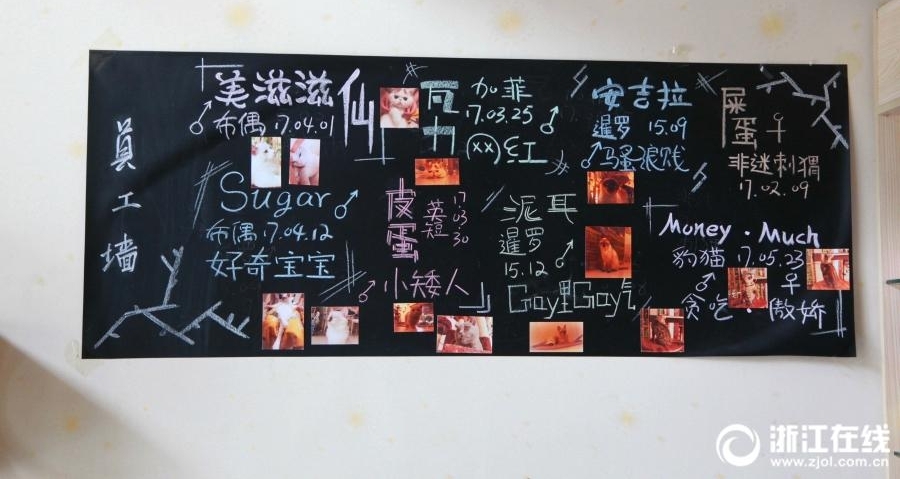 員工墙
美滋滋
♂布偶 17.04.01
仙
瓦力
加菲
17.03.25 ♂
安吉拉
暹罗 15.09
♂马蚤浪贱
屎蛋♀
非迷刺猬
17.02.09
Sugar ♂
布偶 17.04.12
好奇宝宝
皮蛋
英短
17.03.30
♂小矮人
泥耳
暹罗
15.12 ♂
Gay里Gay气
Money·Much
豹猫 17.05.23
♂ ♀
贪吃·傲娇
浙江在线
www.zjol.com.cn